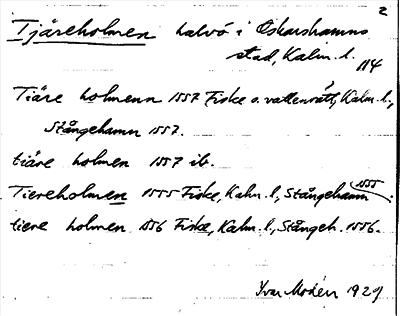 2
Tjäreholmen halvö i Oskarshamns
stad, Kalm. l.
114
Tiäre holmenn 1557 Fiske o. vattenrätt, Kalm. l.,
Stångehamn 1557.
tiäre holmen 1557 ib.
Tiereholmen 1555 Fiske, Kalm. l., Stångehamn 1555.
tiere holmen 1556 Fiske, Kalm. l., Stångeh. 1556.
Ivar Modéer 1929